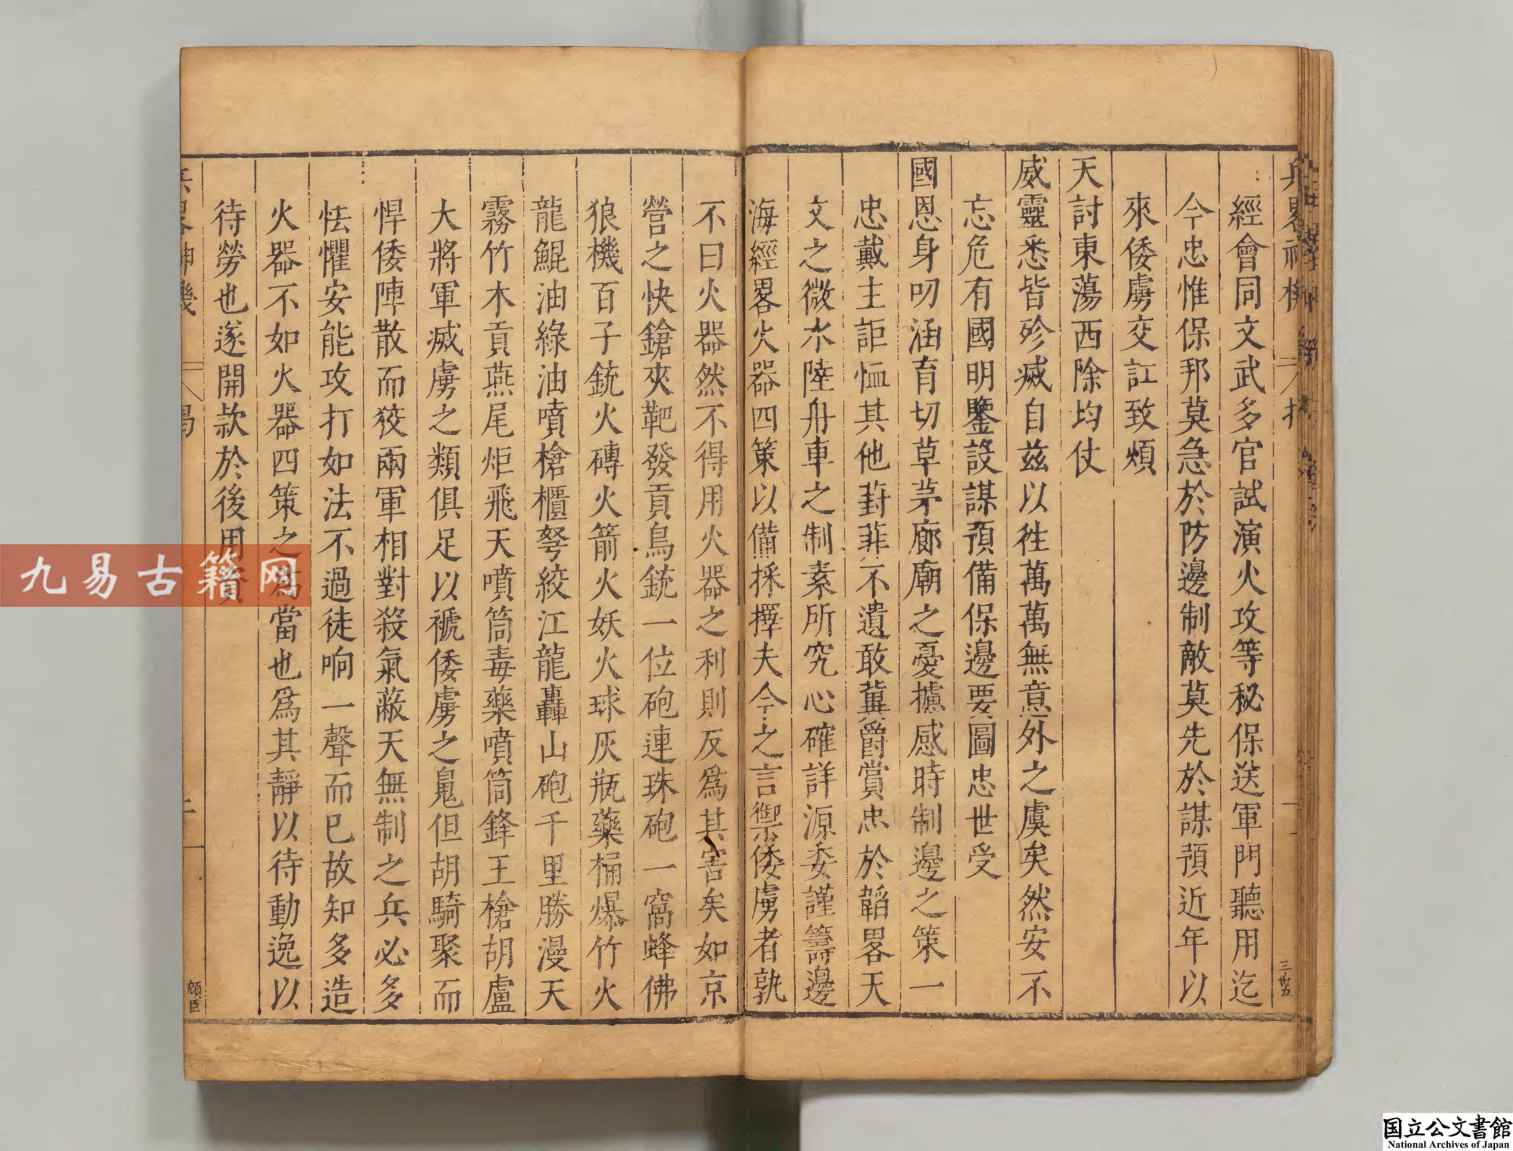 經會同文武多官試演火攻等秘保送軍門聽用迄
今忠惟保邦莫急於防邊制敵莫先於謀預近年以
來倭虜交訌致煩
天討東蕩西除均仗
威靈悉皆殄滅自兹以徃萬萬無意外之虞矣然安不
忘危有國明鑒設謀預備保邊要圖忠世受
國恩身叨涵育切草茅廊廟之憂攄感時制邊之策一
忠戴主詎恤其他葑菲不遺敢冀爵賞忠於韜畧天
文之微水陸舟車之制素所究心確詳源委謹籌邊
海經畧火器四策以備採擇夫今之言禦倭虜者孰
不曰火器然不得用火器之利則反爲其害矣如京
營之快鎗夾靶發貢鳥銃一位砲連珠砲一窩蜂佛
狼機百子銃火磚火箭火妖火球灰瓶藥桶爆竹火
龍鯤油綠油噴槍櫃弩絞江龍轟山砲千里勝漫天
霧竹木貢燕尾炬飛天噴筒毒藥噴筒鋒王槍胡盧
大將軍滅虜之類俱足以褫倭虜之䰟但胡騎聚而
悍倭陣散而狡兩軍相對殺氣蔽天無制之兵必多
怯懼安能攻打如法不過徒响一聲而已故知多造
火器不如火器四策之爲當也爲其靜以待動逸以
待勞也遂開款於後用
三百五
九易古籍网
国立公文書館
National Archives of Japan